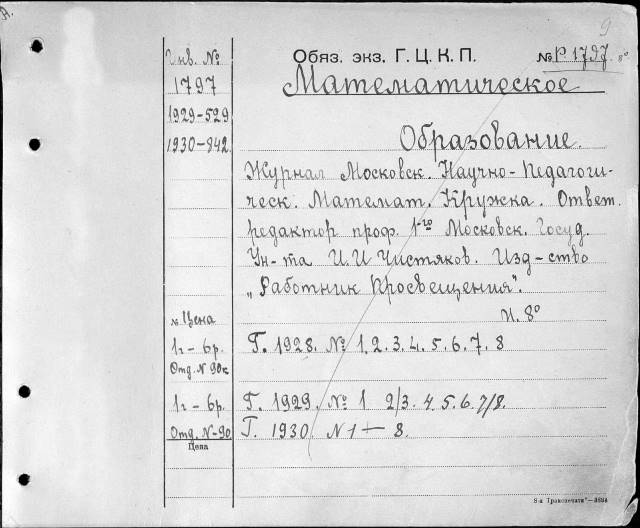 9
Инв. №
Обяз. экз. Г. Ц. К. П.
№ Р. 1797. 8°
1797
Математическое
1929-529
1930-842
Образование.
Журнал Московск. Научно-Педагоги-
ческ. Математ. Кружка. Ответ.
редактор проф. 1-го Московск. Госуд.
Ун-та И. И Чистяков. Изд-ство
„Работник Просвещения".
№ Цена
8°
1г-6р.
Г. 1928. № 1. 2. 3. 4. 5. 6. 7. 8
Отд. N 90к
1г-6р.
Г. 1929. № 1 2/3. 4. 5. 6. 7/8.
Отд. N-90
Г. 1930. N 1 — 8.
Цена
8-я Транспечати"—3688